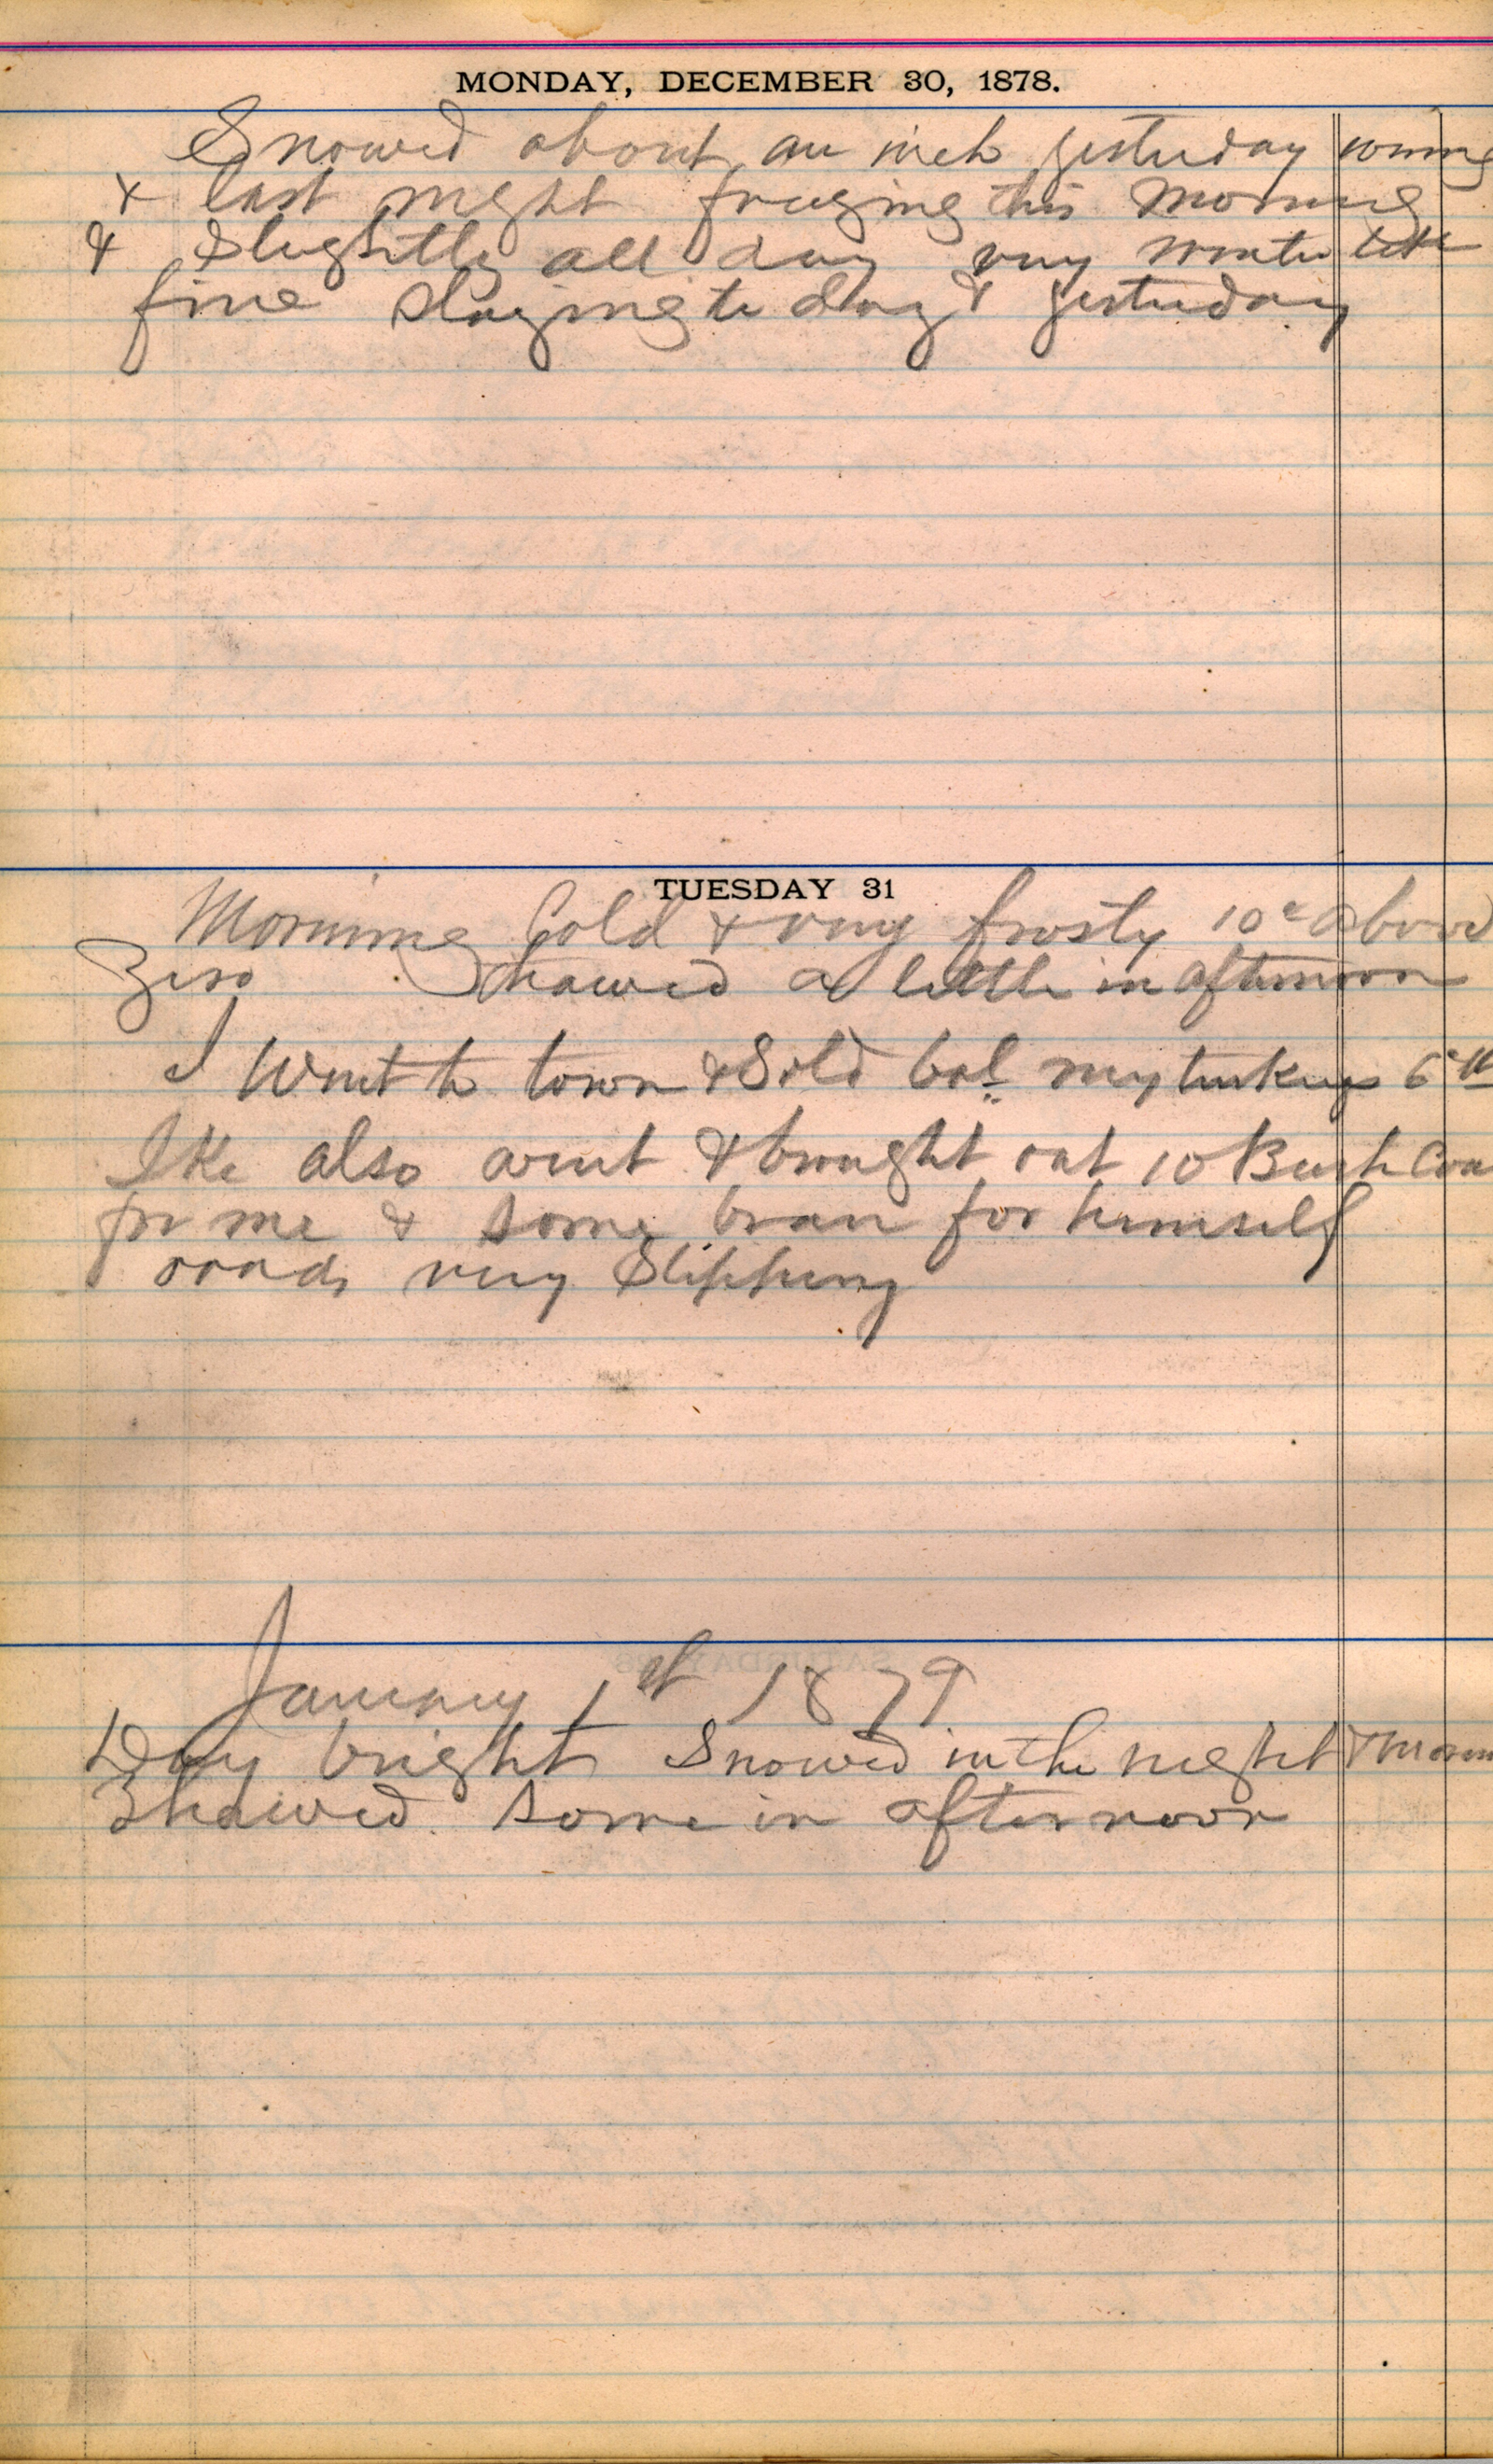 MONDAY, DECEMBER 30, 1878.
Snowed about an inch yesterday
& last night freezing this morning
& Slightly all day very winter like
fine Slaying to day & yesterday
TUESDAY 31
Morning Cold & very frosty 10° above
Zero Thawed a little in afternoon
I Went to town & Sold bal my turkeys 6
Ike also went & brought out 10 Bush
for me & some bran for himself
roads very Slippery
January 1st 1879
Day bright Snowed in the night &
Thawed some in afternoon